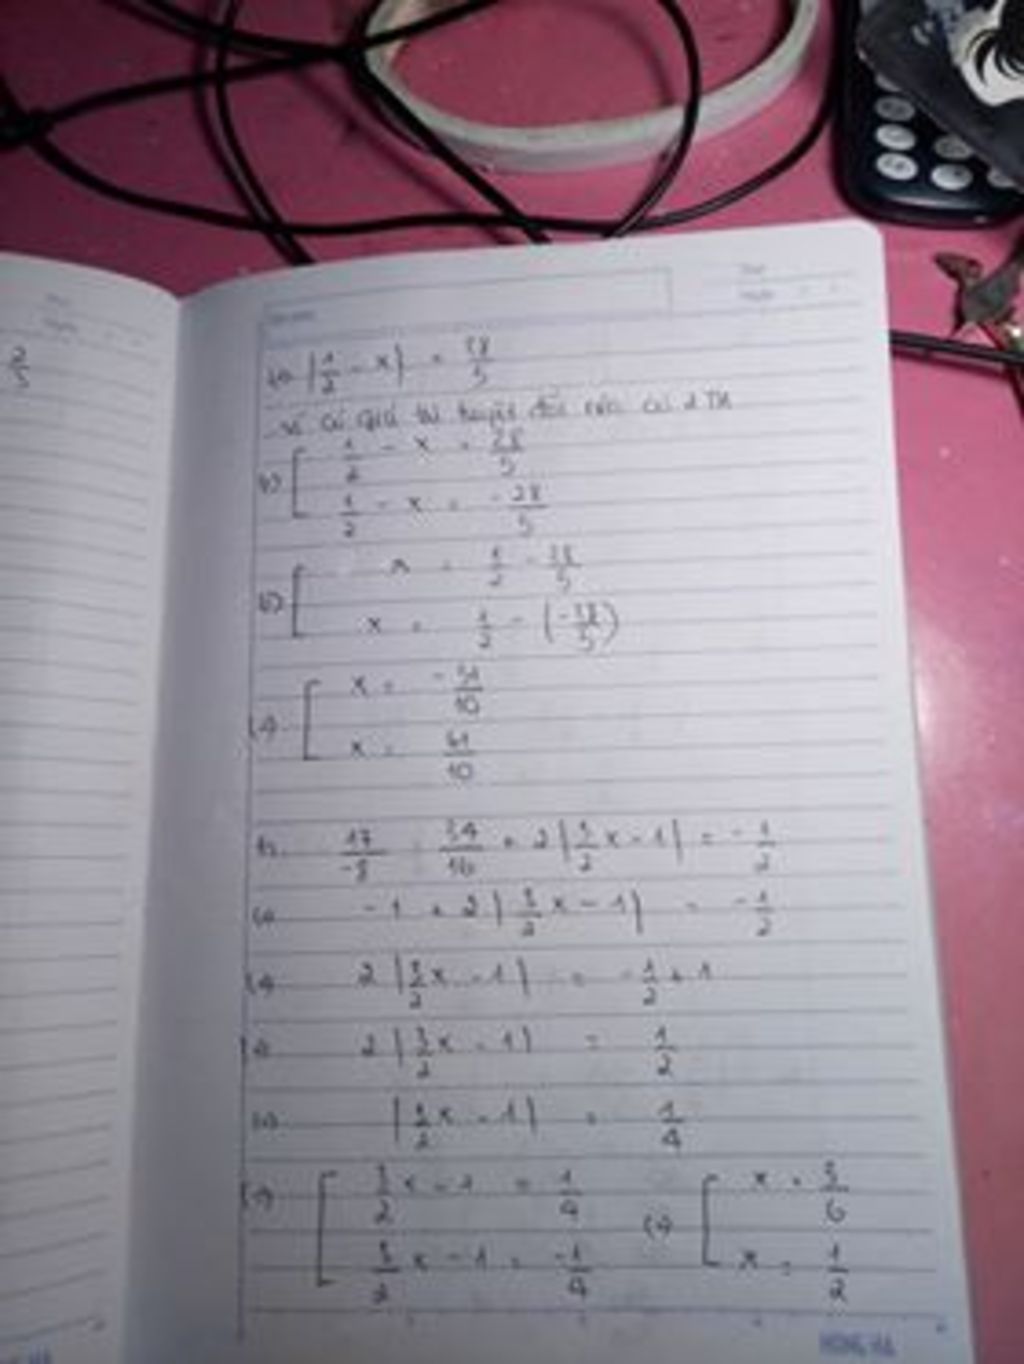 2/5
|1/2 - x| = 28/5
Vì có giá trị tuyệt đối nên có 2 TH
[ 1/2 - x = 28/5
1/2 - x = -28/5
[ x = 1/2 - 28/5
x = 1/2 - (-28/5)
[ x = -51/10
x = 61/10
17/-8 : 34/16 + 2|3/2x - 1| = -1/2
-1 + 2|3/2x - 1| = -1/2
2|3/2x - 1| = -1/2 + 1
2|3/2x - 1| = 1/2
|3/2x - 1| = 1/4
[ 3/2x - 1 = 1/4 [ x = 5/6
3/2x - 1 = -1/4 x = 1/2
HONG HA